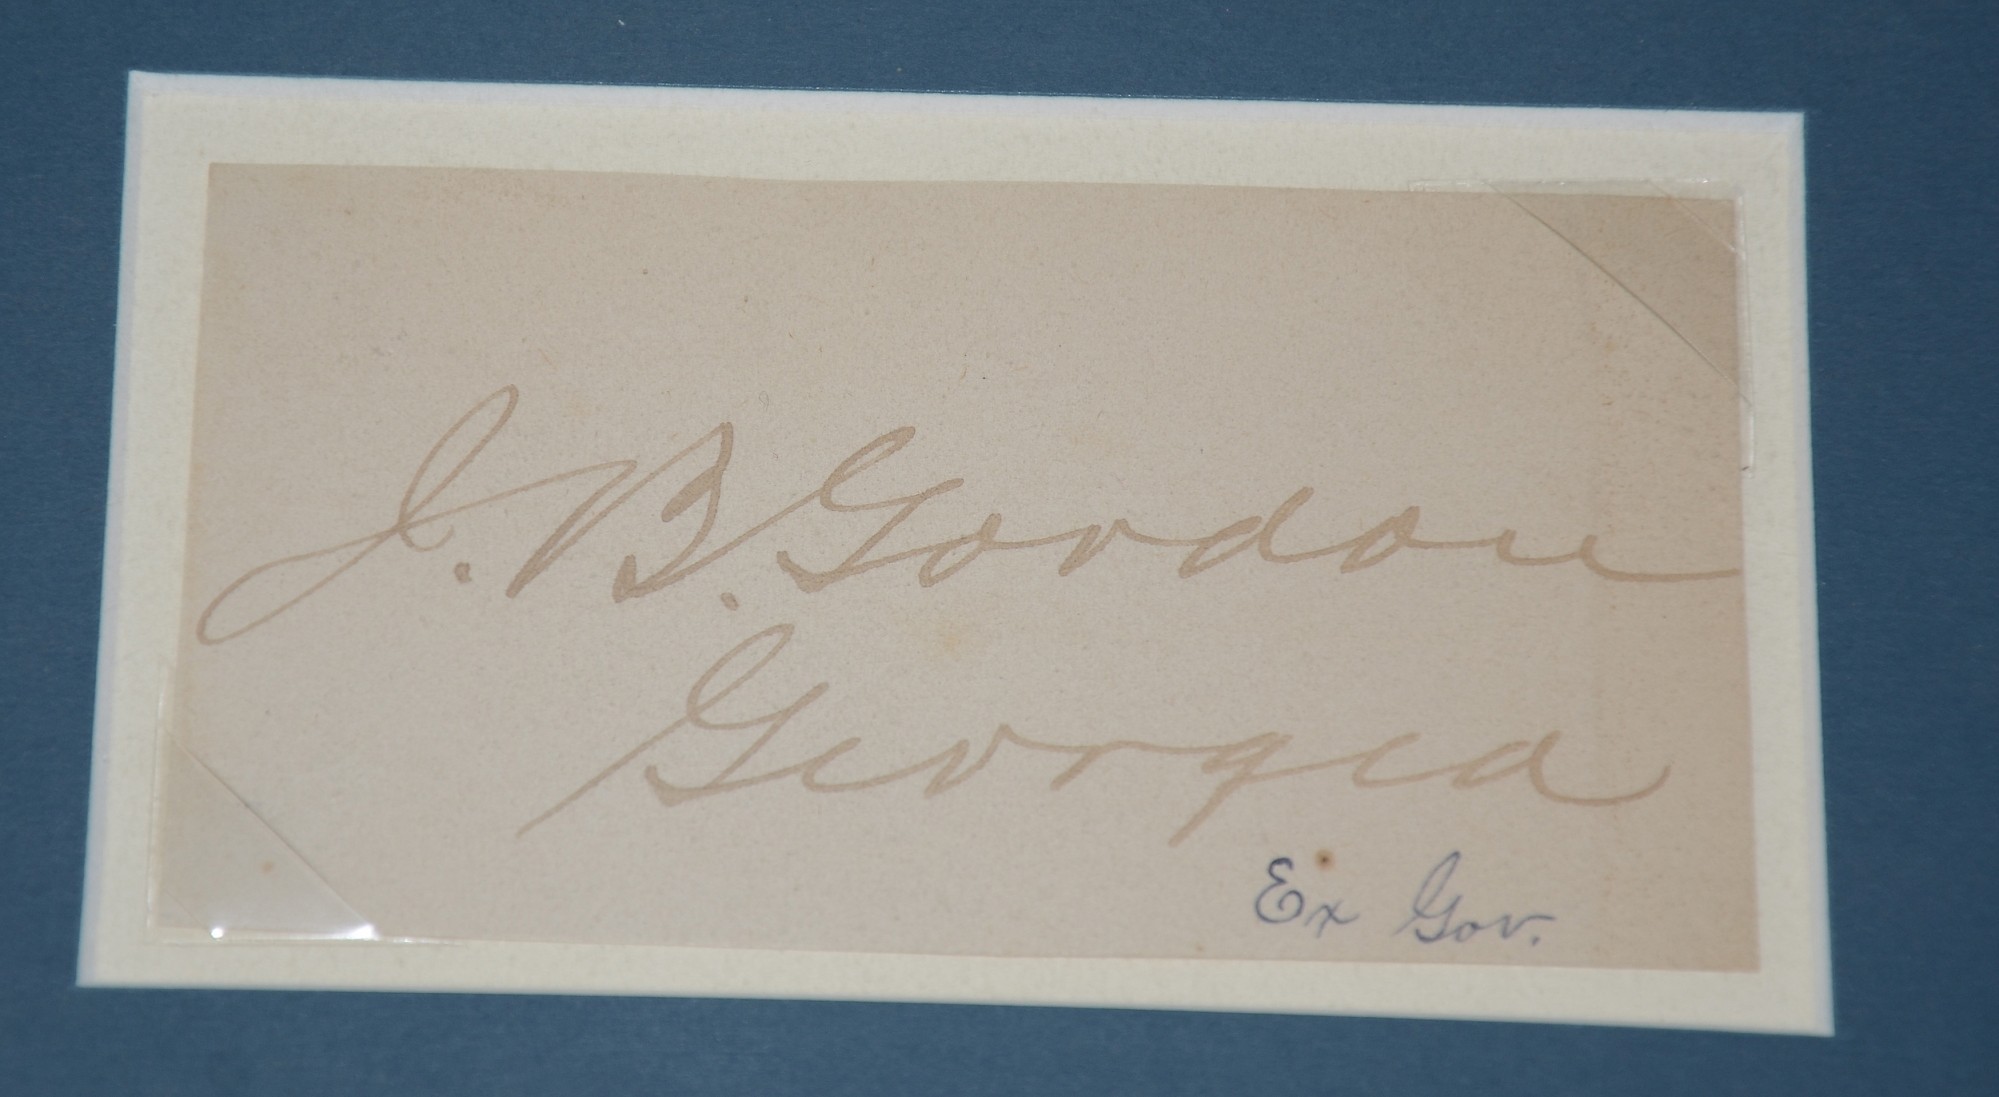 J. B. Gordon
Georgia
Ex Gov.